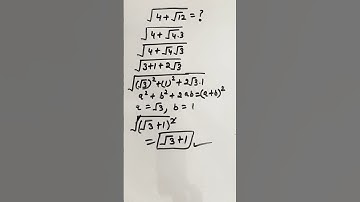 √(4 + √12) = ?
√(4 + √4.3)
√(4 + √4√3)
√(3+1+2√3)
√((√3)²+(1)²+2√3.1)
a²+b²+2ab=(a+b)²
a = √3, b = 1
√(√3+1)²
= √3+1